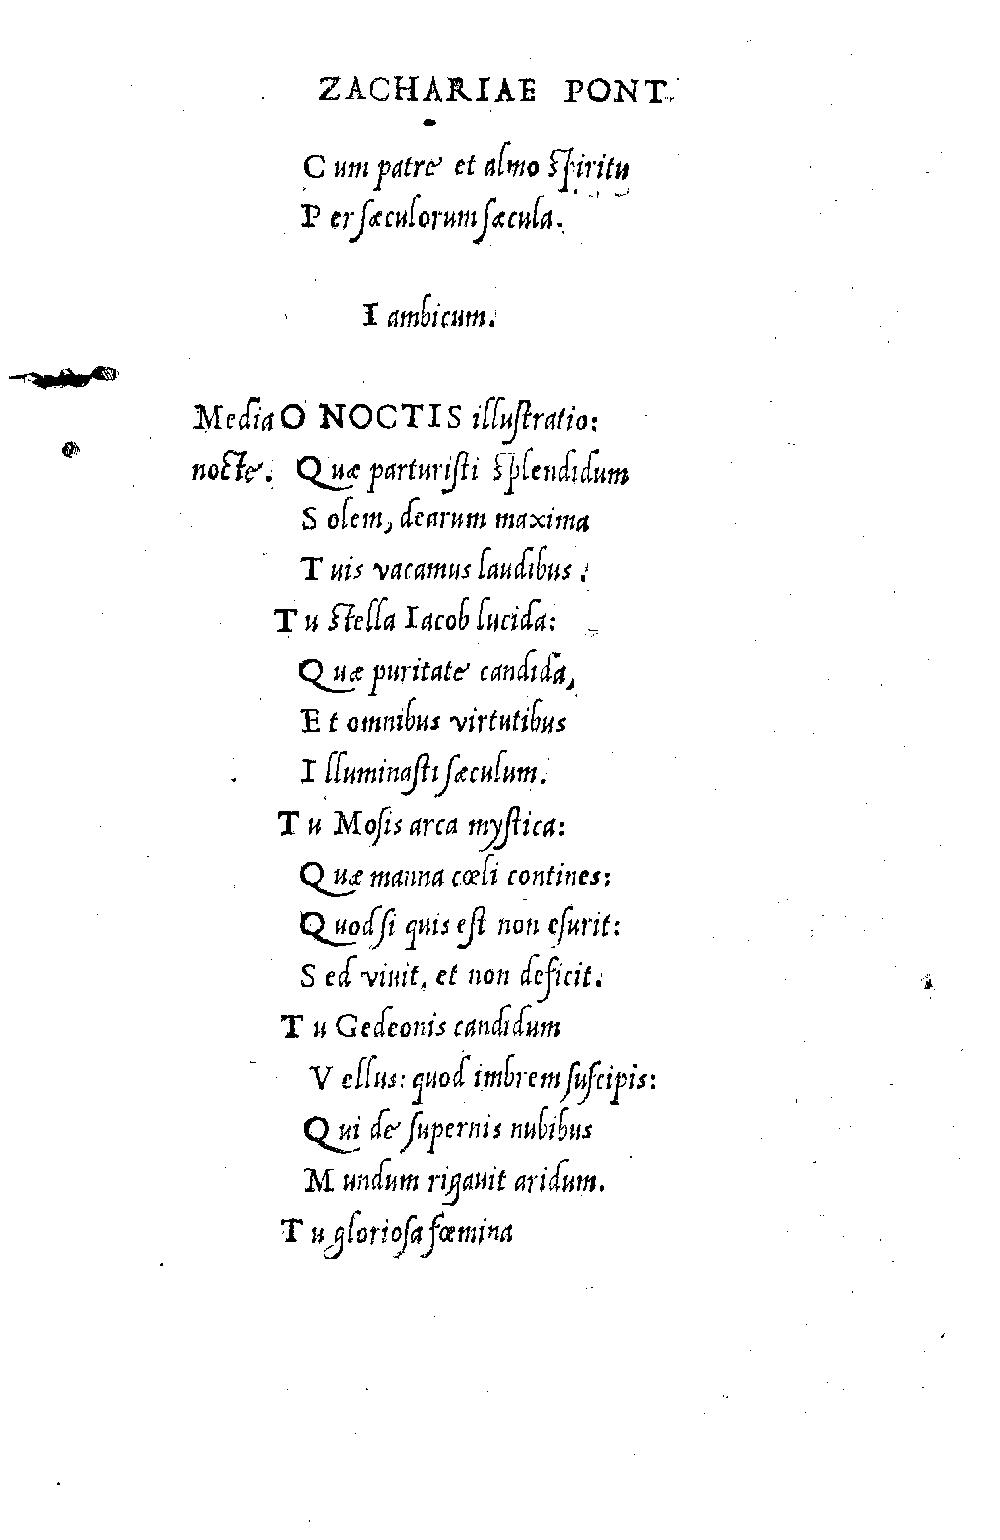 ZACHARIAE PONT.
Cum patre et almo spiritu
Per sæculorum sæcula.
Iambicum.
Media O NOCTIS illustratio:
nocte. Quæ parturisti splendidum
Solem, dearum maxima
Tuis vacamus laudibus.
Tu stella Iacob lucida:
Quæ puritate candida,
Et omnibus virtutibus
Illuminasti sæculum.
Tu Mosis arca mystica:
Quæ manna cœli contines:
Quod si quis est non esurit:
Sed viuit, et non deficit.
Tu Gedeonis candidum
Vellus: quod imbrem suscipis:
Qui de supernis nubibus
Mundum rigauit aridum.
Tu gloriosa fœmina